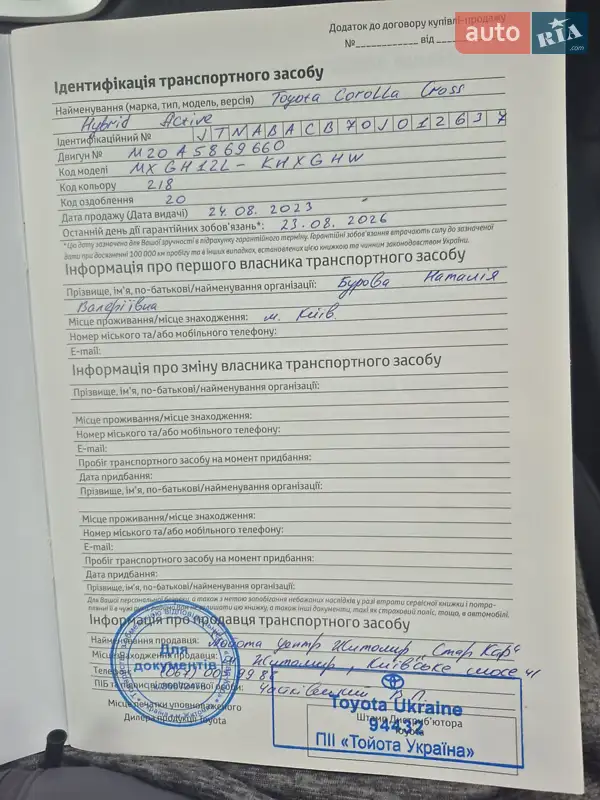 Додаток до договору купівлі-продажу
№____________ від
auto RIA .com
Ідентифікація транспортного засобу
Найменування (марка, тип, модель, версія) Toyota Corolla Cross
Hybrid Active
Ідентифікаційний № JTNABACB70J012637
Двигун № M20A5869660
Код моделі MXGH12L-KHXGHW
Код кольору 218
Код оздоблення 20
Дата продажу (Дата видачі) 24.08.2023
Останній день дії гарантійних зобов'язань*: 23.08.2026
*Цю дату зазначено для Вашої зручності в відрахунку гарантійного терміну. Гарантійні зобов'язання втрачають силу до зазначеної
дати при досягненні 100 000 км пробігу та в інших випадках, встановлених цією книжкою та чинним законодавством України.
Інформація про першого власника транспортного засобу
Прізвище, ім'я, по-батькові/найменування організації: Бурова Наталія
Валеріївна
Місце проживання/місце знаходження: м. Київ
Номер міського та/або мобільного телефону:
E-mail:
Інформація про зміну власника транспортного засобу
Прізвище, ім'я, по-батькові/найменування організації:
Місце проживання/місце знаходження:
Номер міського та/або мобільного телефону:
E-mail:
Пробіг транспортного засобу на момент придбання:
Дата придбання:
Прізвище, ім'я, по-батькові/найменування організації:
Місце проживання/місце знаходження:
Номер міського та/або мобільного телефону:
E-mail:
Пробіг транспортного засобу на момент придбання:
Дата придбання:
Прізвище, ім'я, по-батькові/найменування організації:
Для Вашої персональної безпеки, а також з метою запобігання небажаних наслідків у разі втрати сервісної книжки і потра-
Інформація про продавця транспортного засобу
Найменування продавця: Тойота Центр Житомир "Стар Кар"
Місцезнаходження продавця: м. Житомир, Київське шосе
Телефон
Для
документів
Місце печатки уповноваженого
Дилера продукції Toyota
Toyota Ukraine
94432
ПІІ «Тойота Україна»
Штамп Дистриб'ютора
Toyota